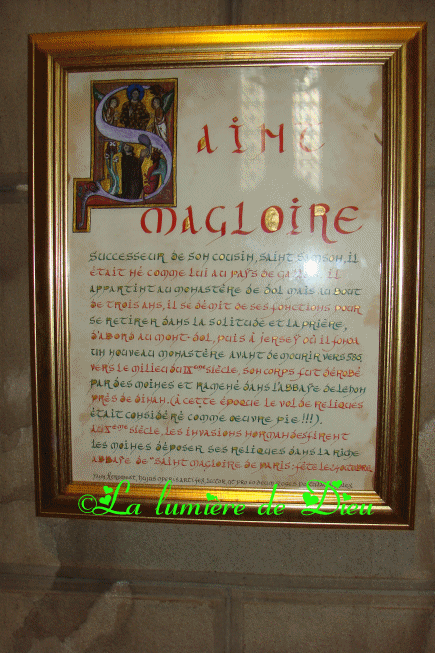 Saint
MAGLOIRE
SUCCESSEUR DE SON COUSIN, SAINT SAMSON, IL
ÉTAIT NÉ COMME LUI AU PAYS DE GALLES. IL
APPARTINT AU MONASTÈRE DE DOL MAIS AU BOUT
DE TROIS ANS, IL SE DÉMIT DE SES FONCTIONS POUR
SE RETIRER DANS LA SOLITUDE ET LA PRIÈRE,
D'ABORD AU MONT-DOL, PUIS À JERSEY OÙ IL FONDA
UN NOUVEAU MONASTÈRE AVANT DE MOURIR VERS 585.
VERS LE MILIEU DU IXème SIÈCLE, SON CORPS FUT DÉROBÉ
PAR DES MOINES ET RAMENÉ DANS L'ABBAYE DE LEHON
PRÈS DE DINAN. (À CETTE ÉPOQUE LE VOL DE RELIQUES
ÉTAIT CONSIDÉRÉ COMME OEUVRE PIE !!!).
AU Xème SIÈCLE, LES INVASIONS NORMANDES FIRENT
LES MOINES DÉPOSER SES RELIQUES DANS LA RICHE
ABBAYE DE "SAINT MAGLOIRE DE PARIS: FÊTE LE 24 OCTOBRE.
©La lumière de Dieu